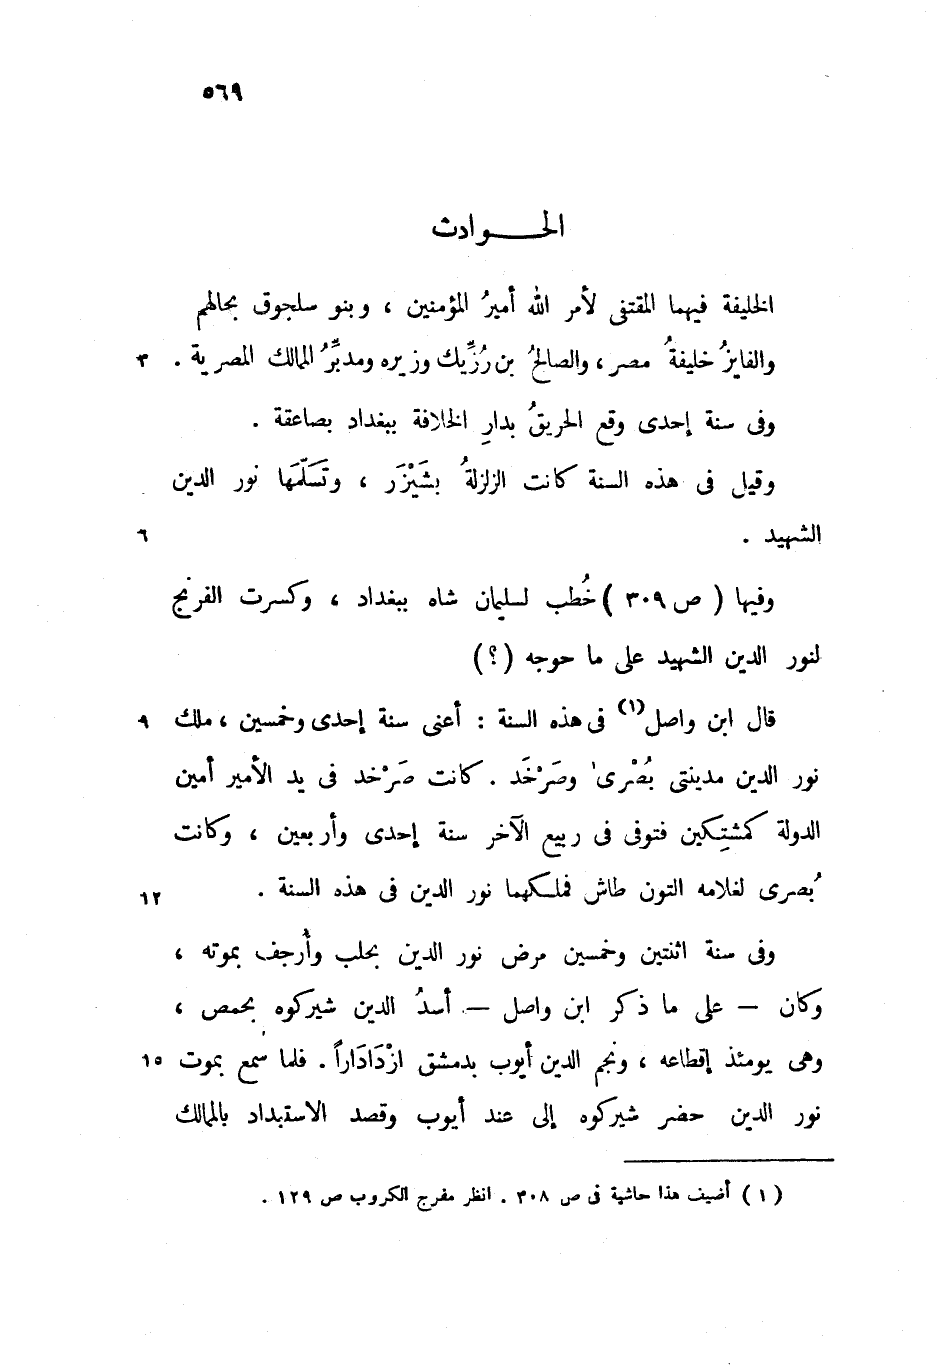 ٥٦٩
الحــوادث
الخليفة فيهما المقتفى لأمر الله أميرُ المؤمنين ، وبنو سلجوق بحالهم
والفايزُ خليفةُ مصر، والصالحُ بن رُزِّيك وزيره ومدبِّرُ الممالك المصرية . ٣
وفى سنة إحدى وقع الحريقُ بدارِ الخلافة ببغداد بصاعقة .
وقيل فى هذه السنة كانت الزلزلةُ بشَيْزَر ، وتَسَلّمَها نور الدين
الشهيد . ٦
وفيها ( ص ٣٠٩ ) خُطب لسليمان شاه ببغداد ، وكسرت الفرنج
لنور الدين الشهيد على ما حوجه (؟)
قال ابن واصل(١) فى هذه السنة : أعنى سنة إحدى وخمسين ، ملك ٩
نور الدين مدينتى بُصْرى وصَرْخَد . كانت صَرْخد فى يد الأمير أمين
الدولة كمشتِكين فتوفى فى ربيع الآخر سنة إحدى وأربعين ، وكانت
بُصرى لغلامه التون طاش فملكهما نور الدين فى هذه السنة . ١٢
وفى سنة اثنتين وخمسين مرض نور الدين بحلب وأُرجف بموته ،
وكان – على ما ذكر ابن واصل – أسدُ الدين شيركوه بحمص ،
وهى يومئذ إقطاعه ، ونجم الدين أيوب بدمشق ازْدَادَاراً . فلما سُمع بموت ١٥
نور الدين حضر شيركوه إلى عند أيوب وقصد الاستبداد بالممالك
(١) أضيف هذا حاشية فى ص ٣٠٨ . انظر مفرج الكروب ص ١٢٩ .